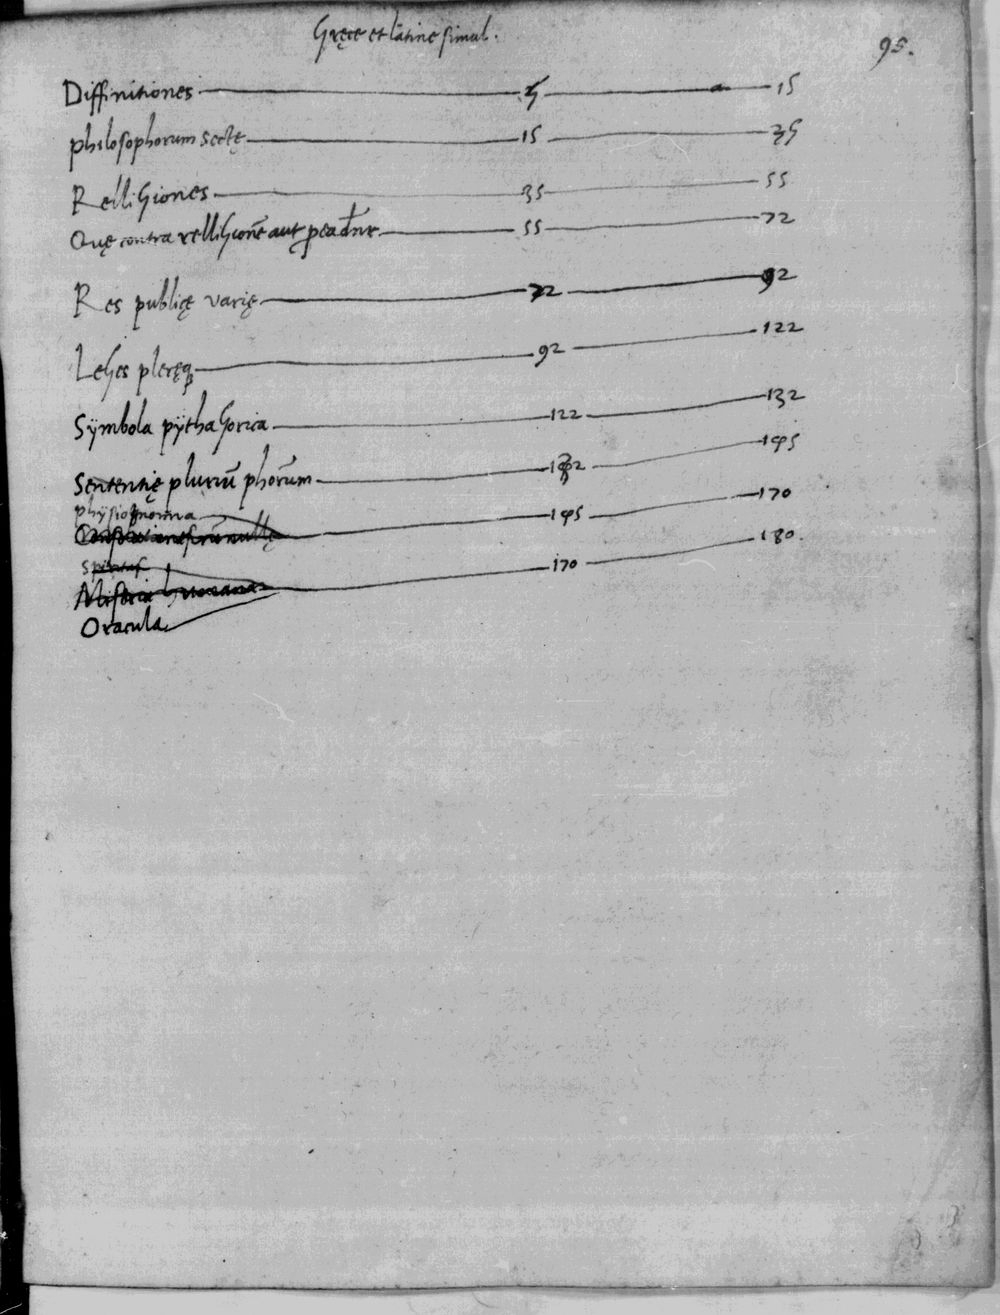 Gręce et latine simul.
95.
Diffinitiones 5 15
philosophorum sectę 15 35
Relligiones 35 55
Quę contra relligionē aut 55 72
Res publicę varię 72 92
Leges pleręq 92 122
Sÿmbola pÿthagorica 122 132
Sententię pluriū phorum 132 145
physiognomia
145 170
170 180.
Oracula